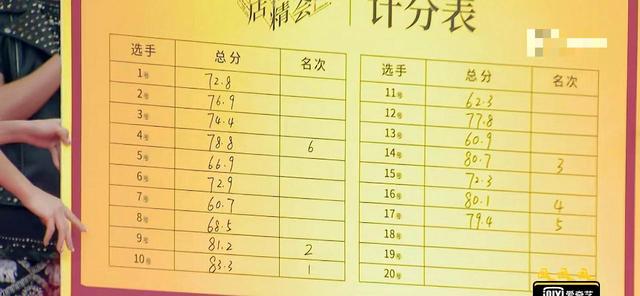 计分表
选手 总分 名次
1号 72.8
2号 76.9
3号 74.4
4号 78.8 6
5号 66.9
6号 72.9
7号 60.7
8号 68.5
9号 81.2 2
10号 83.3 1
选手 总分 名次
11号 62.3
12号 77.8
13号 60.9
14号 80.7 3
15号 72.3
16号 80.1 4
17号 79.4 5
18号
19号
20号
爱奇艺